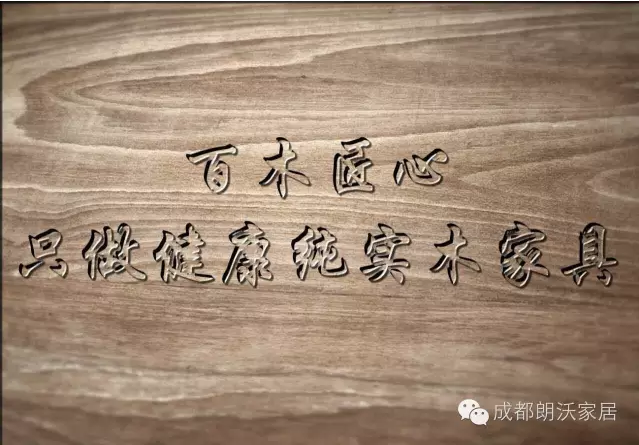 百木匠心
只做健康纯实木家具
成都朗沃家居